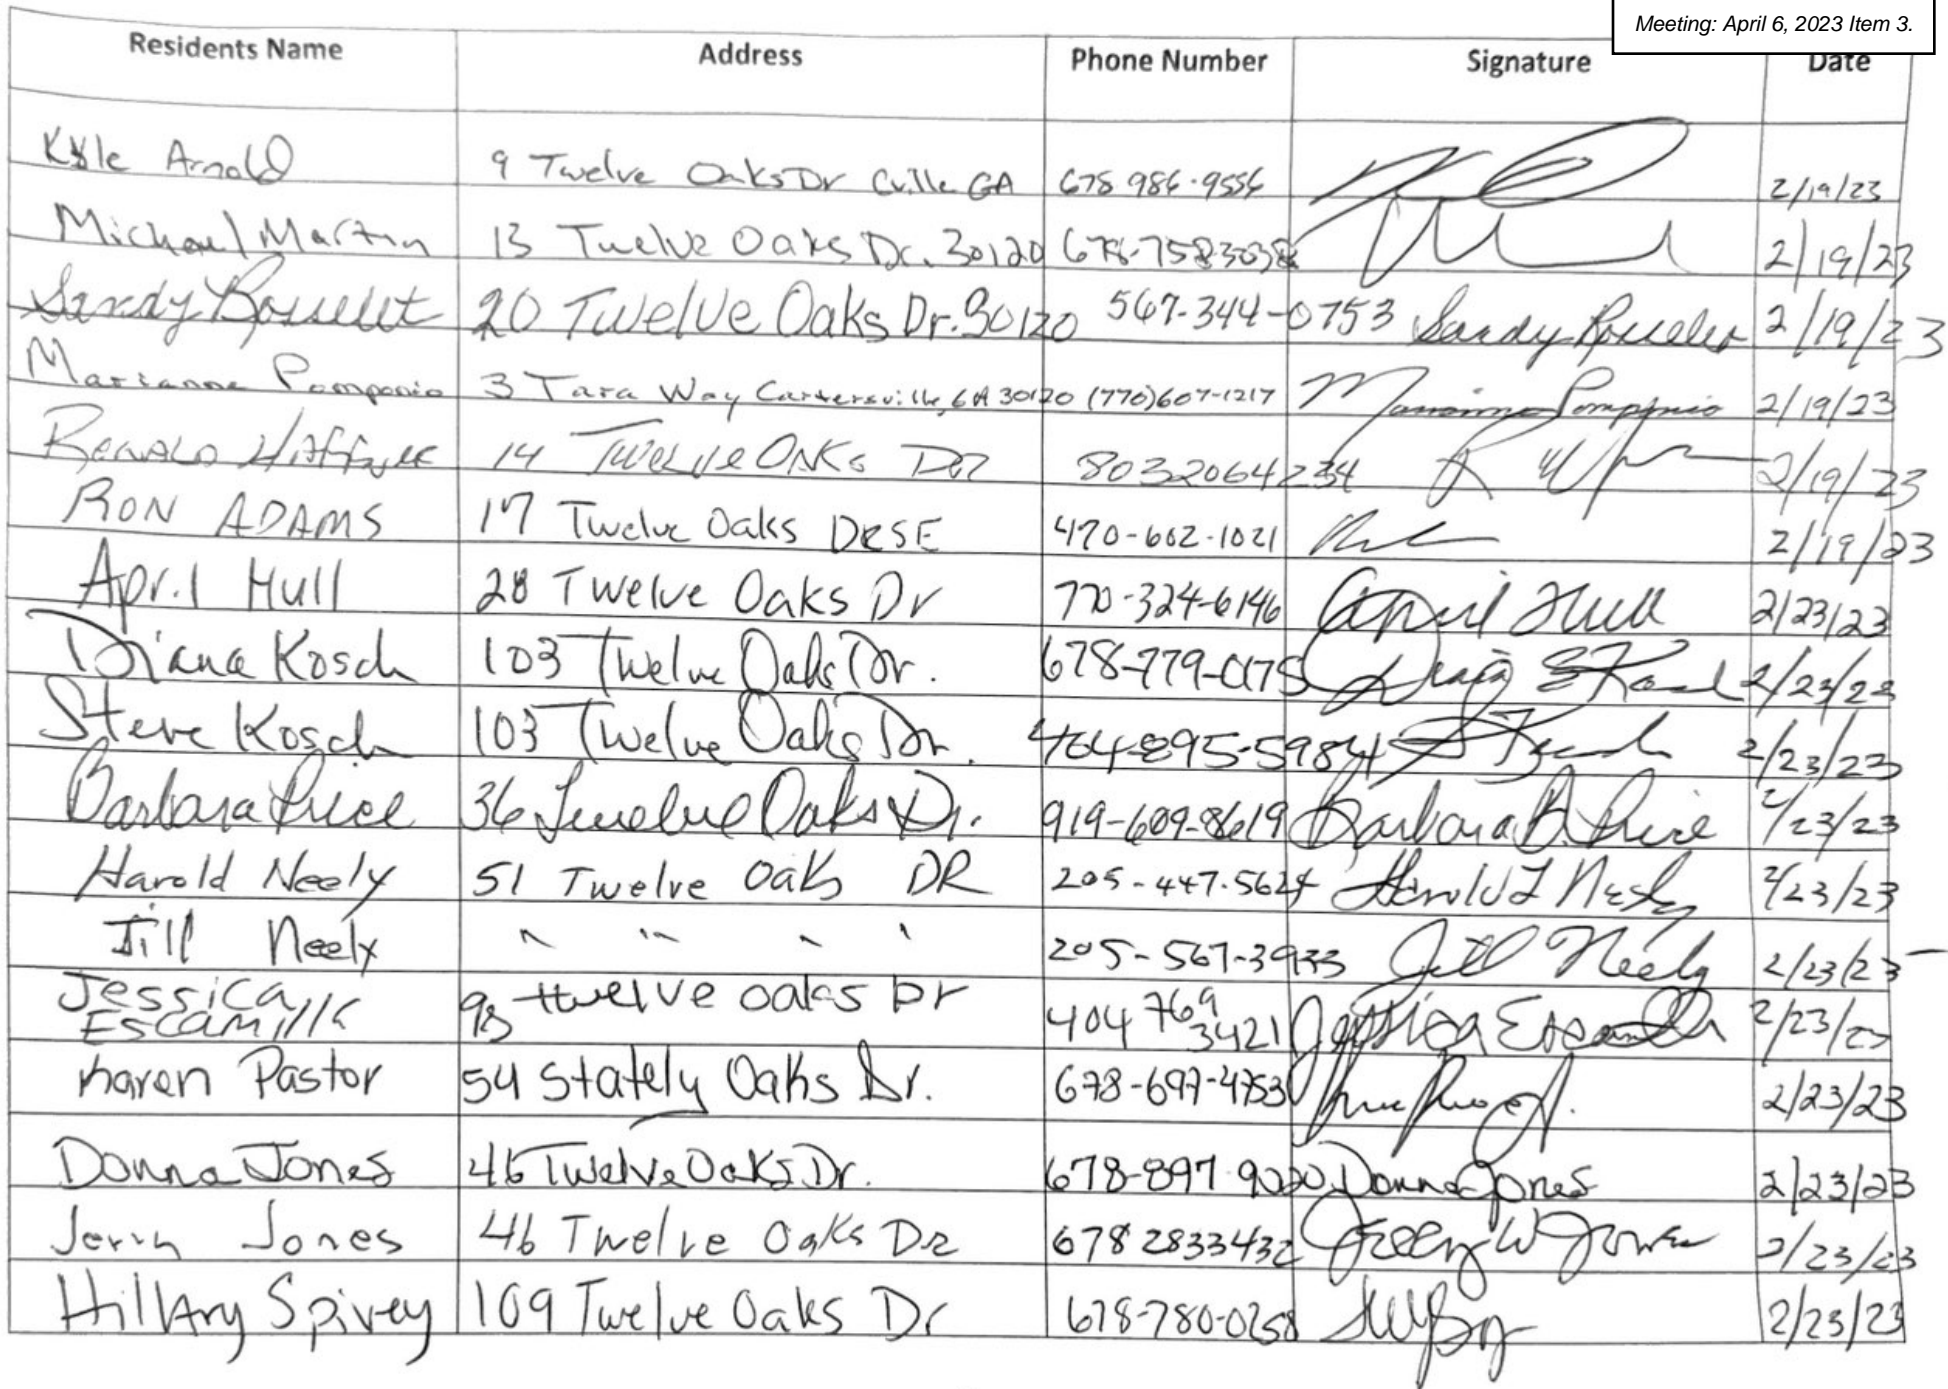 Meeting: April 6, 2023 Item 3.
Residents Name Address Phone Number Signature Date
Kyle Arnold 9 Twelve Oaks Dr Cville GA 678 986-9556 2/19/23
Michael Martin 13 Twelve Oaks Dr. 30120 2/19/23
Sandy 20 Twelve Oaks Dr. 30120 567-344-0753 Sandy 2/19/23
Marianne Pomponio 3 Tara Way Cartersville, GA 30120 (770)607-1217 Marianne Pomponio 2/19/23
14 Twelve Oaks Dr 8032064234 2/19/23
RON ADAMS 17 Twelve Oaks DRSE 470-602-1021 2/19/23
April Hull 28 Twelve Oaks Dr 770-324-6146 April Hull 2/23/23
Diana Kosch 103 Twelve Oaks Dr. 678-779-0175 2/23/23
Steve Kosch 103 Twelve Oaks Dr. 404-895-5984 2/23/23
Barbara Price 36 Twelve Oaks Dr. 919-609-8619 Barbara B. Price 2/23/23
Harold Neely 51 Twelve Oaks DR 205-447-5624 Harold L Neely 2/23/23
Jill Neely " " " " 205-567-3933 Jill Neely 2/23/23
Jessica
Escamilla 98 twelve oaks Dr 404 769 3421 Jessica Escamilla 2/23/23
Karen Pastor 54 Stately Oaks Dr. 678-697-4753 2/23/23
Donna Jones 46 Twelve Oaks Dr. 678-897-9020 Donna Jones 2/23/23
Jerry Jones 46 Twelve Oaks Dr 678 2833432 Jerry W Jones 2/23/23
Hillary Spivey 109 Twelve Oaks Dr 678-780-0258 2/23/23